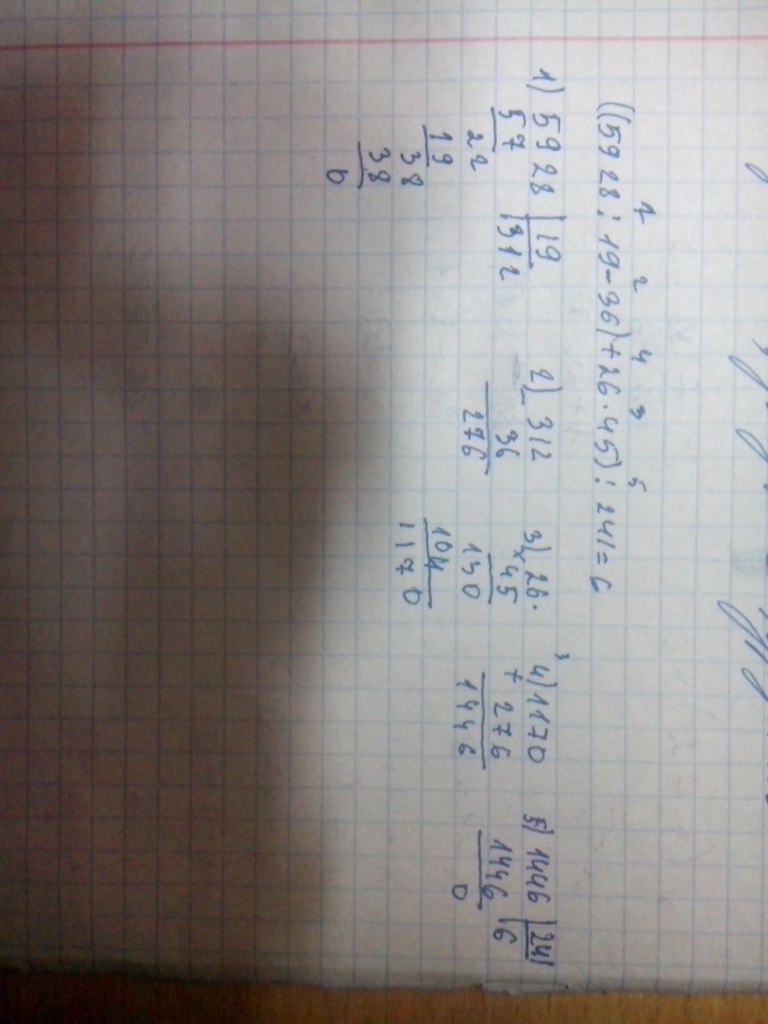 1 2 4 3 5
((5928:19-36)+26·45):241=6
1) 5928 | 19
57 | 312
22
19
38
38
0
2) - 312
36
276
3) × 26·
45
130
104
1170
4) 1170
+ 276
1446
5) 1446 | 241
1446 | 6
0